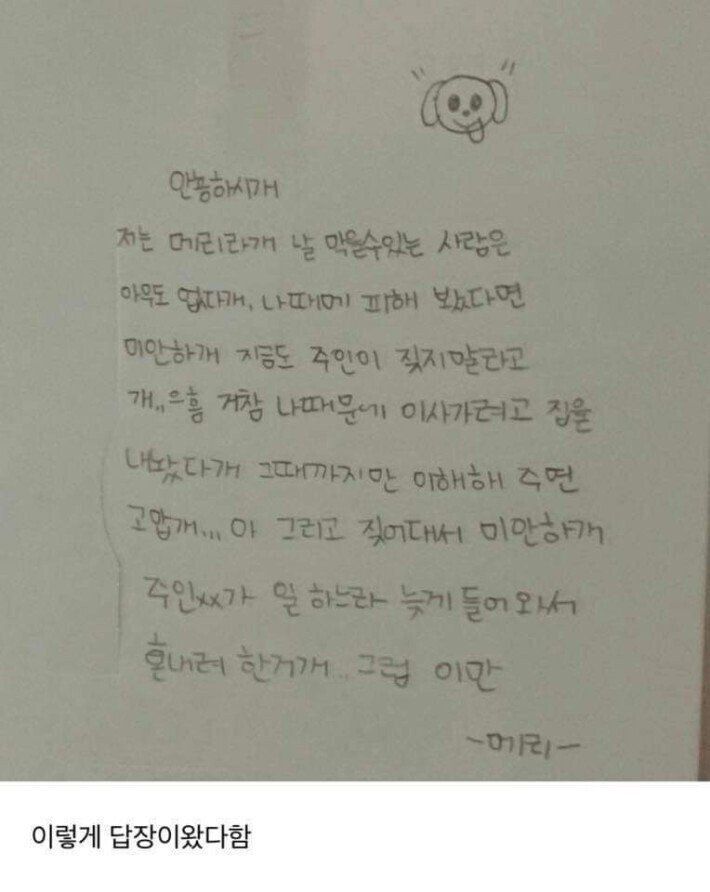 안룡하시개
저는 메리라개 날 막을수있는 사람은
아무도 업다개, 나때메 피해 보았다면
미안하개 지금도 주인이 짖지말라고
개,,으흠 거참 나때문에 이사가려고 집을
내놨다개 그때까지만 이해해 주면
고맙개... 아 그리고 짖어대서 미안하개
주인xx가 일 하느라 늦게 들어와서
혼내려 한거개.. 그럼 이만
-메리-
이렇게 답장이왔다함